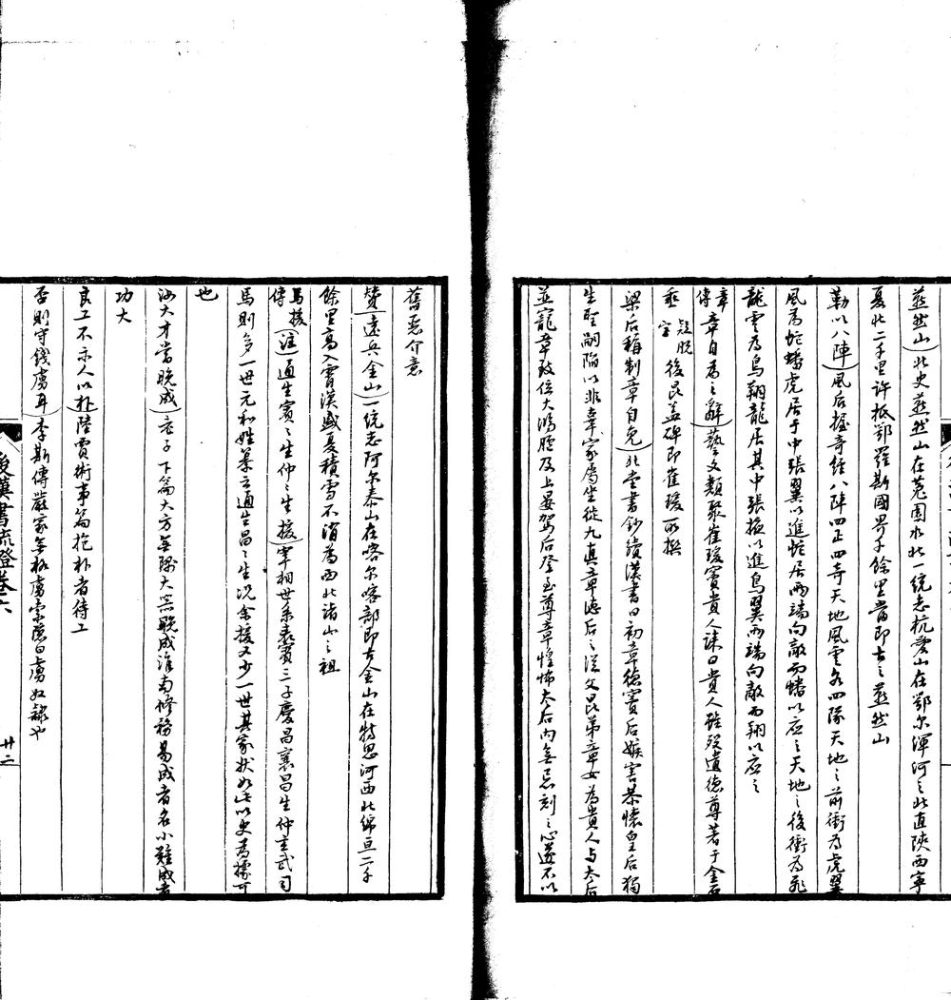 燕然山)北史燕然山在菟園水北一統志杭愛山在鄂尔渾河之北直陝西寧
夏北二千里許抵鄂羅斯國界千餘里當即古之燕然山
勒以八陣)風后握奇經八陣四正四奇天地風雲為四隊天地之前衝為虎翼
風為蛇蟠虎居于中張翼以進蛇居兩端向敵而蟠以應之天地之後衝為飛
龍雲為鳥翔龍居其中張掖以進鳥翼兩端向敵而翔以應之
章傳
章自為之辭)藝文類聚崔瑗竇貴人誄曰貴人雖歿遺德尊著于金石
亟定 疑脫 後昆蓋碑即崔瑗所撰
梁后稱制章自免)北堂書鈔續漢書曰初章德竇后嫉害恭懷皇后獨
生聖嗣陷以非辜家屬坐徙九真章德后之從父昆弟章女為貴人与太后
並寵章故位大鴻臚及上晏駕后登至尊章惶怖太后內無忌刻之心遂不以
舊惡介意
憲)遠兵金山)一統志阿尔泰山在喀尔喀部即古金山在特思河西北綿亘二千
餘里高入霄漢盛夏積雪不消為西北諸山之祖
馬援傳
(注)通生賓之生仲之生援)宰相世系表賓三子慶昌襄昌生仲玄武司
馬則多一世元和姓纂云通生昌之生況余援又少一世其家狀如此以史為據可
也
汝大才當晚成)老子下篇大方無隅大器晚成淮南脩務易成者名小難成者
功大
良工不示人以朴)陸賈術事篇抱朴者待工
否則守錢虜耳)李斯傳嚴家無格虜索隱曰虜奴隸也
後漢書疏證卷六
廿二